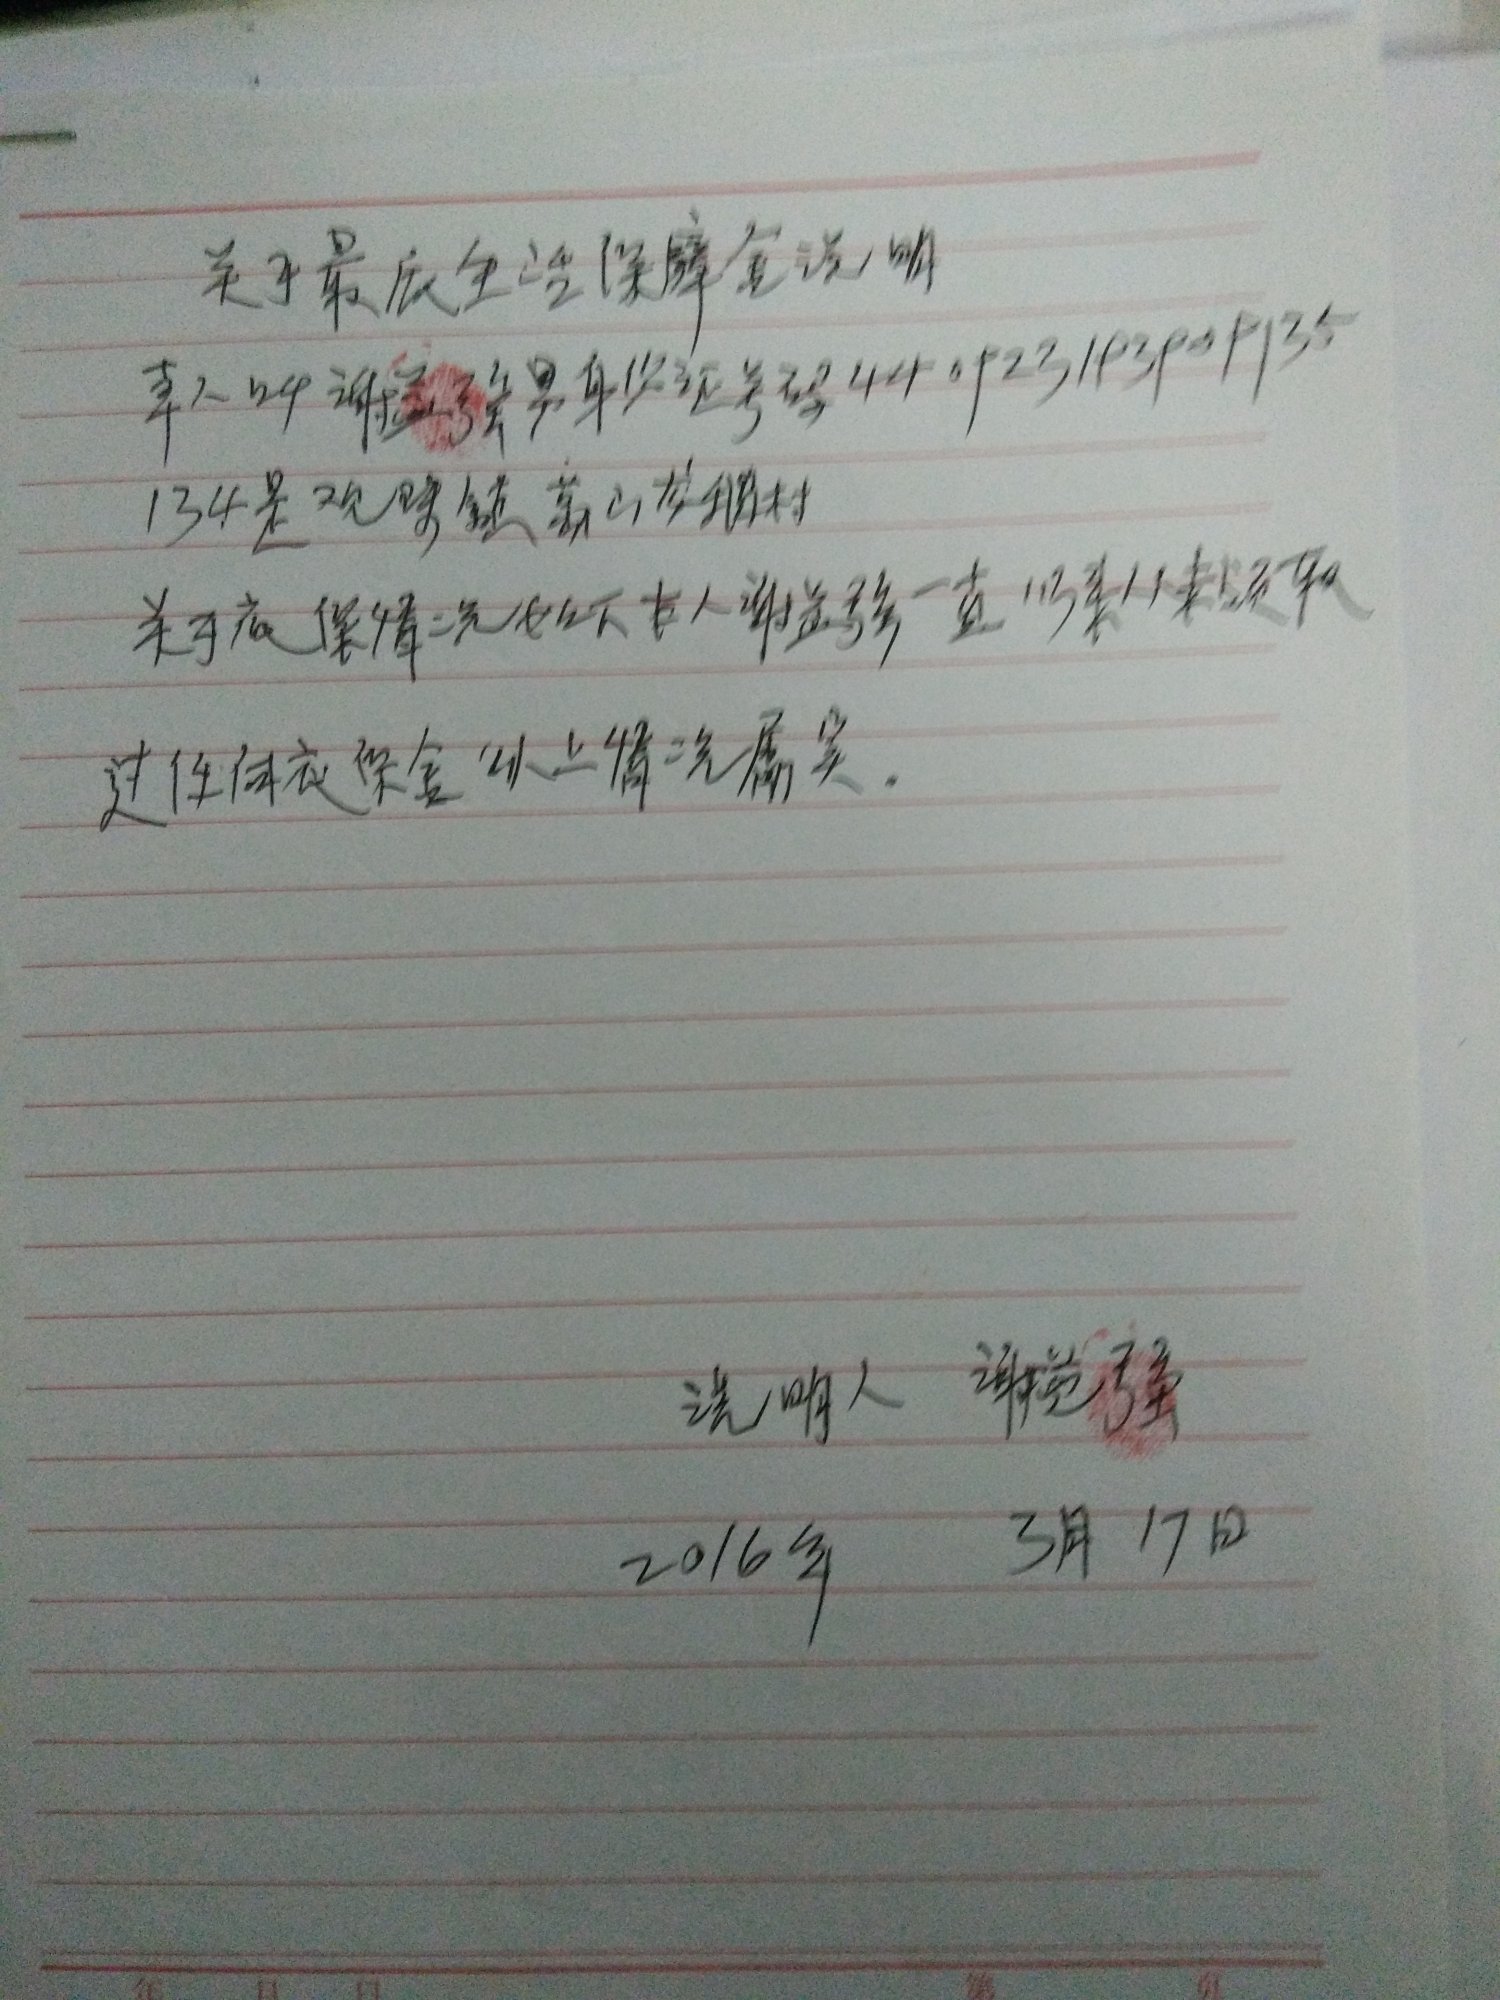 关于最底生活保障金说明
本人叫谢益强男身份证号码440923193909135
134是观珠镇 山 村
关于底保情况如下本人谢益强一直以来从未领取
过任何底保金以上情况属实.
说明人 谢益强
2016年 3月17日
年 月 日 第 页